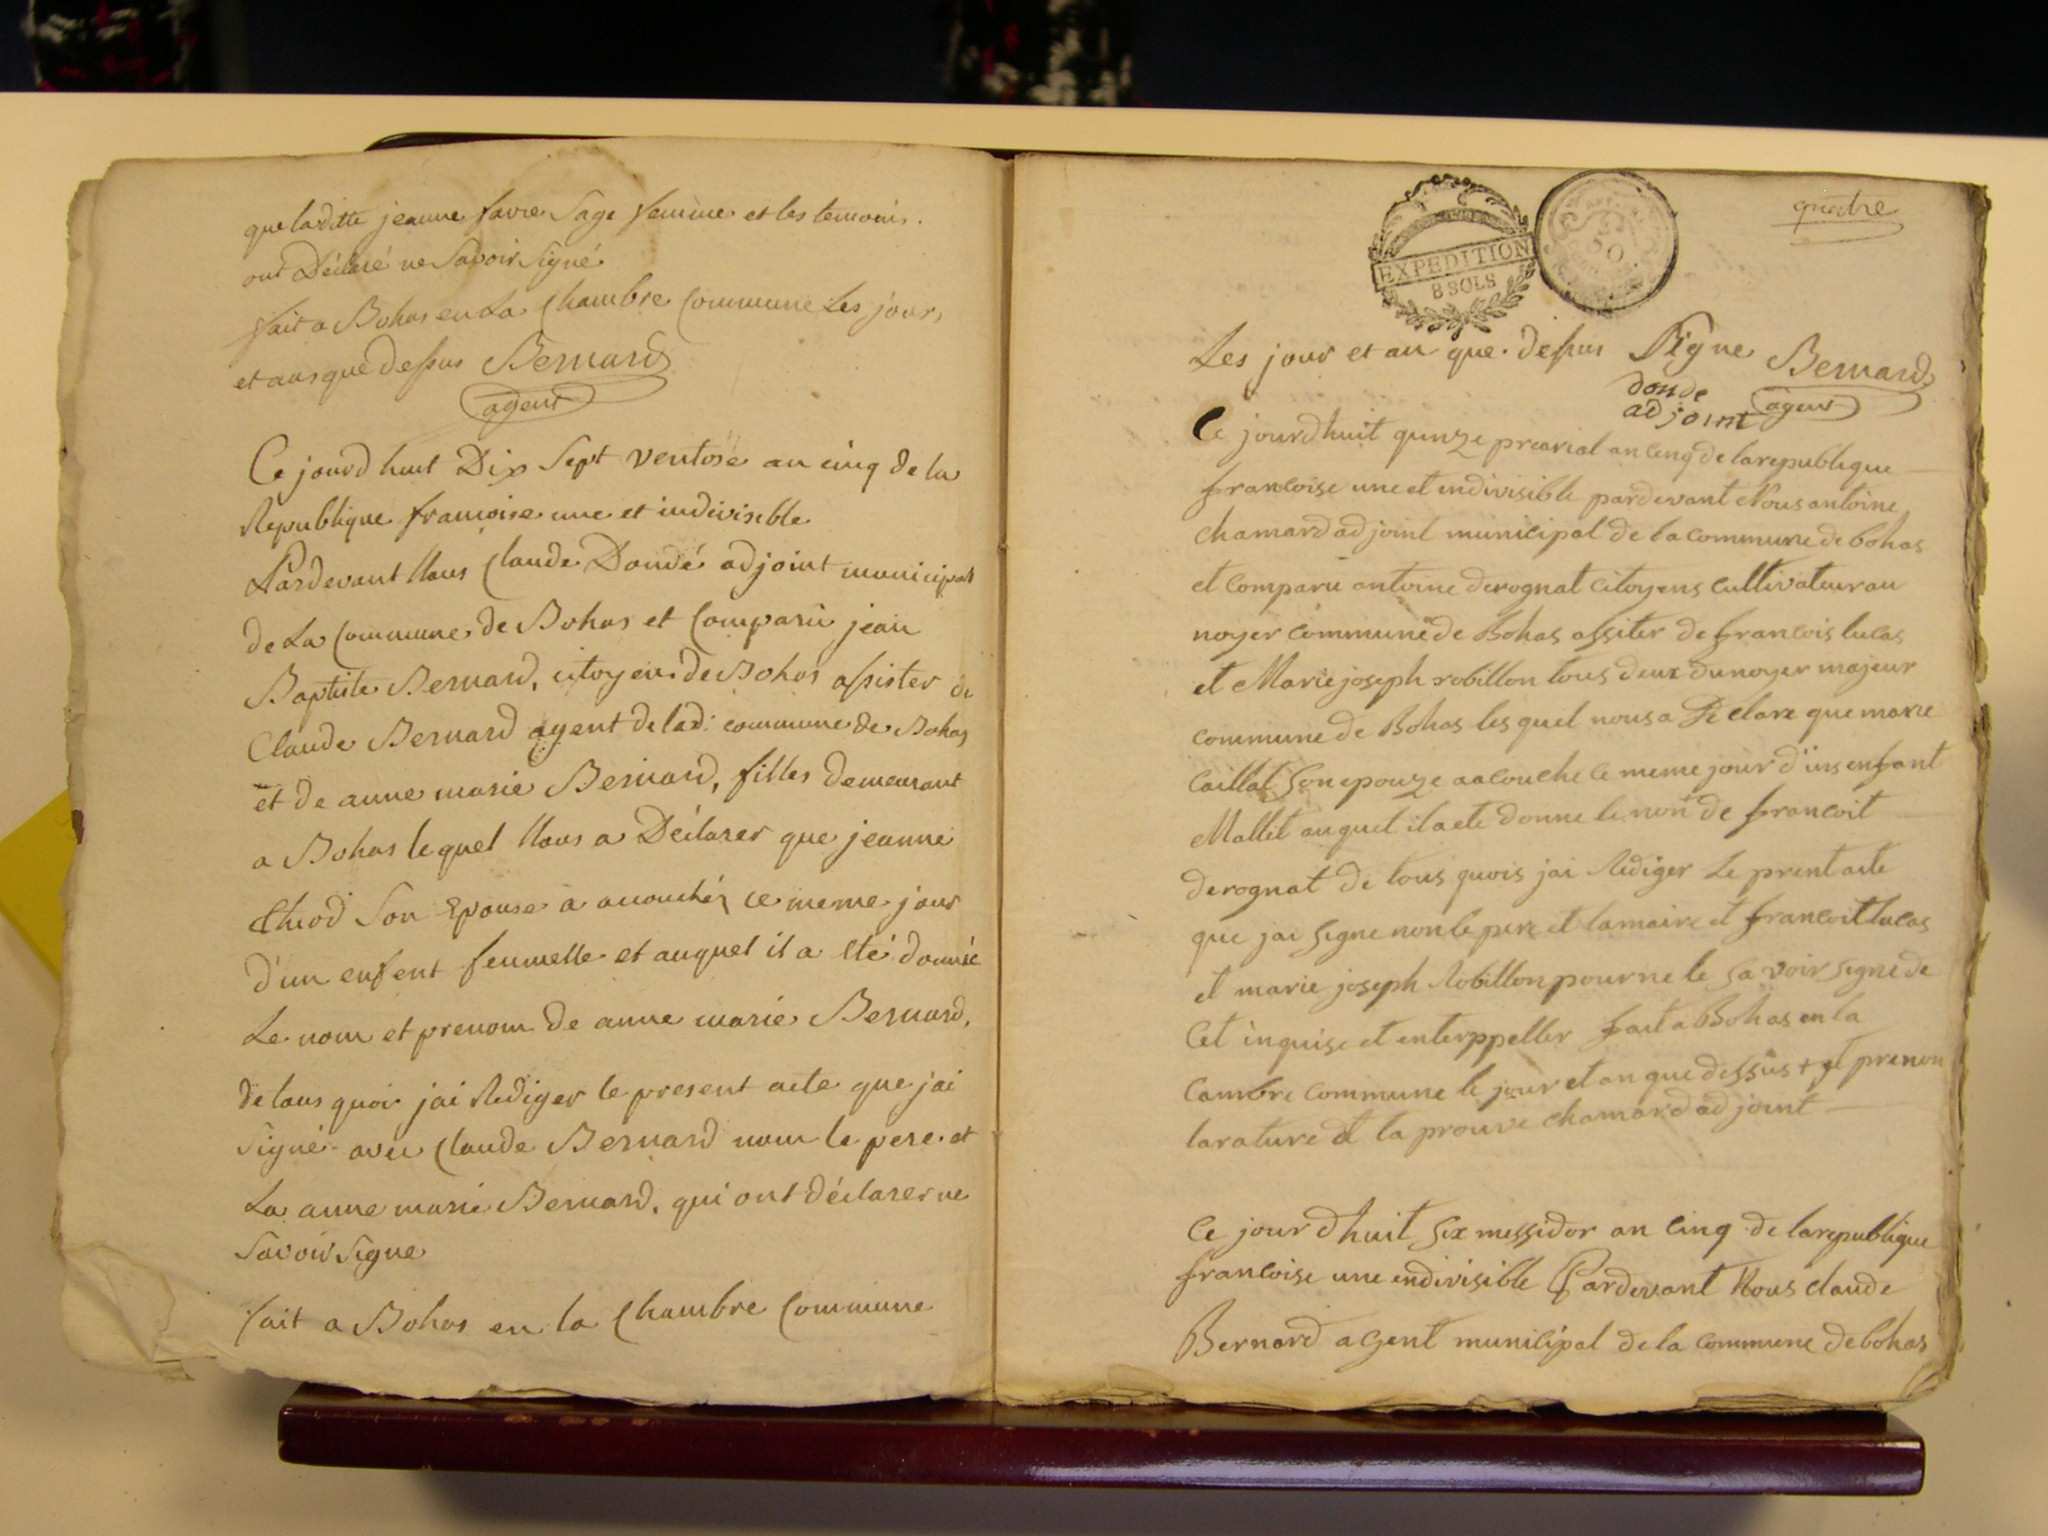 que laditte jeanne favre Sage femme et les temoins.
ont Déclaré ne Savoir Signé
fait a Bohas en La Chambre Commune Les jours
et ans que dessus Bernard
agent
Ce jourd huit Dix Sept ventose an cinq de la
Republique francoise une et indivisible
Pardevant Nous Claude Dondé adjoint municipal
de La Commune de Bohas et Comparu jean
Baptiste Bernard, citoyen de Bohas assister de
Claude Bernard agent de lad. commune de Bohas
et de anne marie Bernard, filles demeurant
a Bohas lequel Nous a Déclarer que jeanne
Chiod Son Epouse a acouchéz ce meme jour
d'un enfent femmelle et auquel il a Eté donnée
Le nom et prenom de anne marie Bernard,
de tous quoi jai Rediger le present acte que jai
Signé avec Claude Bernard nom le pere et
La anne marie Bernard, qui ont déclarer ne
Savoir Signe
fait a Bohas en la Chambre Commune
EXPEDITION
8 SOLS
50
quatre
Les jour et an que dessus Signe Bernard
donde
adjoint agent
Ce jourdhuit qunze prearial an cinq de la republique
francoise une et indivisible pardevant Nous antoine
chamard adjoint municipal de la commune de bohas
et comparu antoine derognat citoyens cultivateur au
noyer commune de Bohas assiter de francois lucas
et Marie joseph robillon tous deux du noyer majeur
commune de Bohas les quel nous a Declare que marie
caillat son epouze a acouche ce meme jour d'ins enfant
Mallet auquel il a ete donne le non de francoit
derognat de tous quois jai Rediger Le prent acte
que jai signe non le pere et la maire et francoit lucas
et marie joseph Robillon pour ne le savoir signe de
cet inquise et enterppeller fait a Bohas en la
cambre commune le jour et an que dessus + et prenon
la rature et la prouve chamard adjoint
Ce jour dhuit six messidor an cinq de la republique
francoise une endivisible Pardevant Nous claude
Bernard agent municipal de la commune de bohas